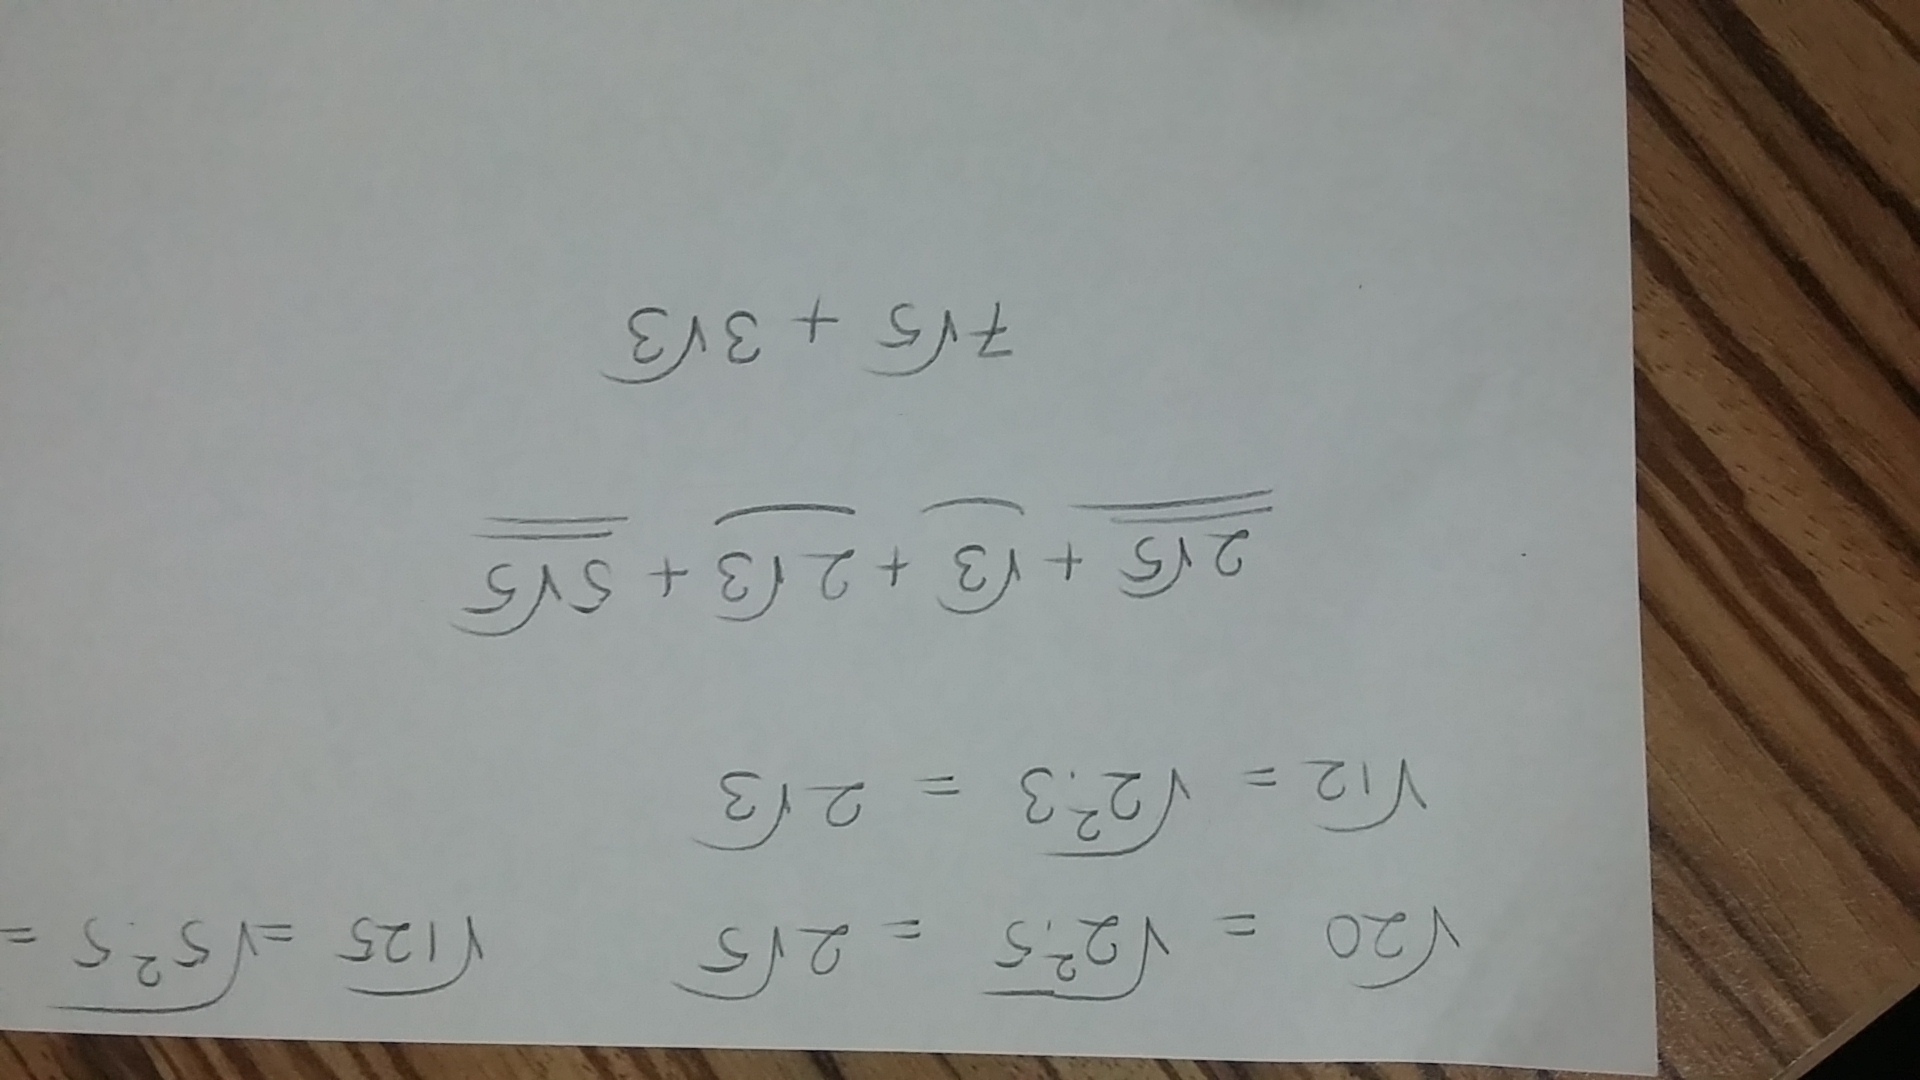 √20 = √2²·5 = 2√5 √125 = √5²·5 =
√12 = √2²·3 = 2√3
2√5 + √3 + 2√3 + 5√5
7√5 + 3√3